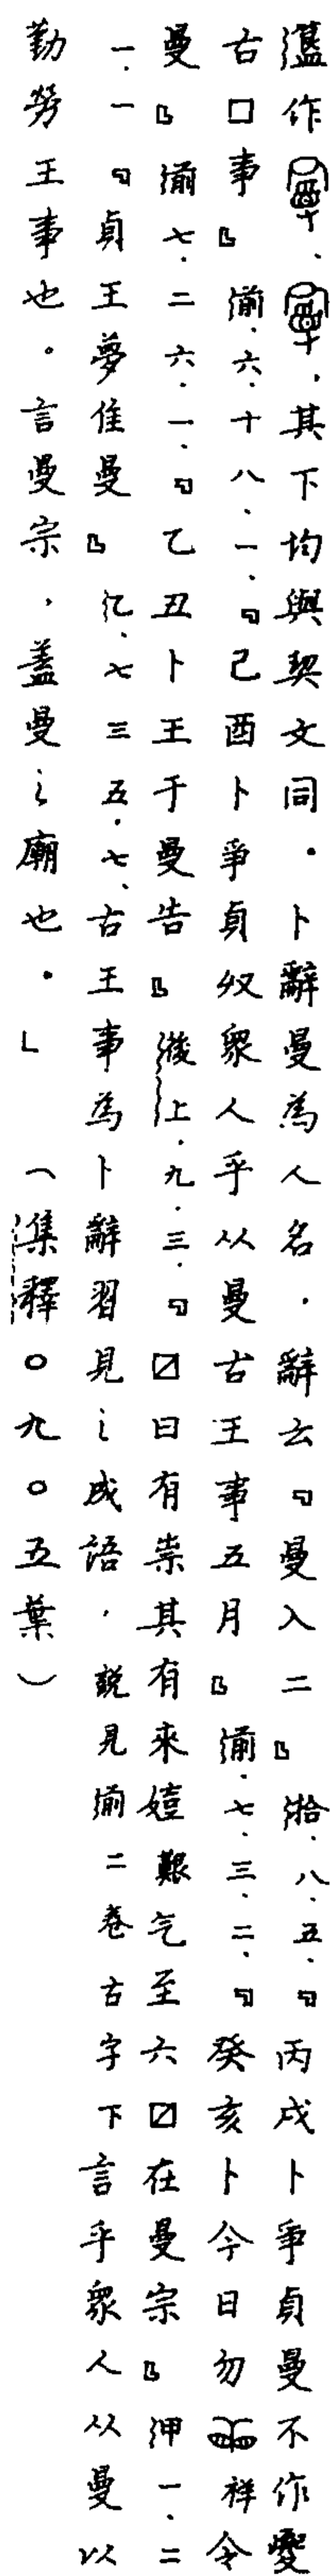 作、,其下均與契文同。卜辭曼為人名。辭云『曼入二』洽.八.五.『丙戌卜爭貞曼不作
古□事』湔.六.十八.一.『己酉卜爭貞奴眾人乎从曼古王事五月』湔.七.三.二.『癸亥卜今日勿祥令
曼』湔七.二六.一.『乙丑卜王于曼告』後上.九.三.『☐曰有祟其有來嬉艱气至六☐在曼宗』湔一.二
一.一『貞王夢隹曼』.七三五.七、古王事為卜辭習見之成語,說見湔二卷古字下言乎眾人从曼以
勤勞王事也。言曼宗,蓋曼之廟也。」(集釋〇九〇五葉)